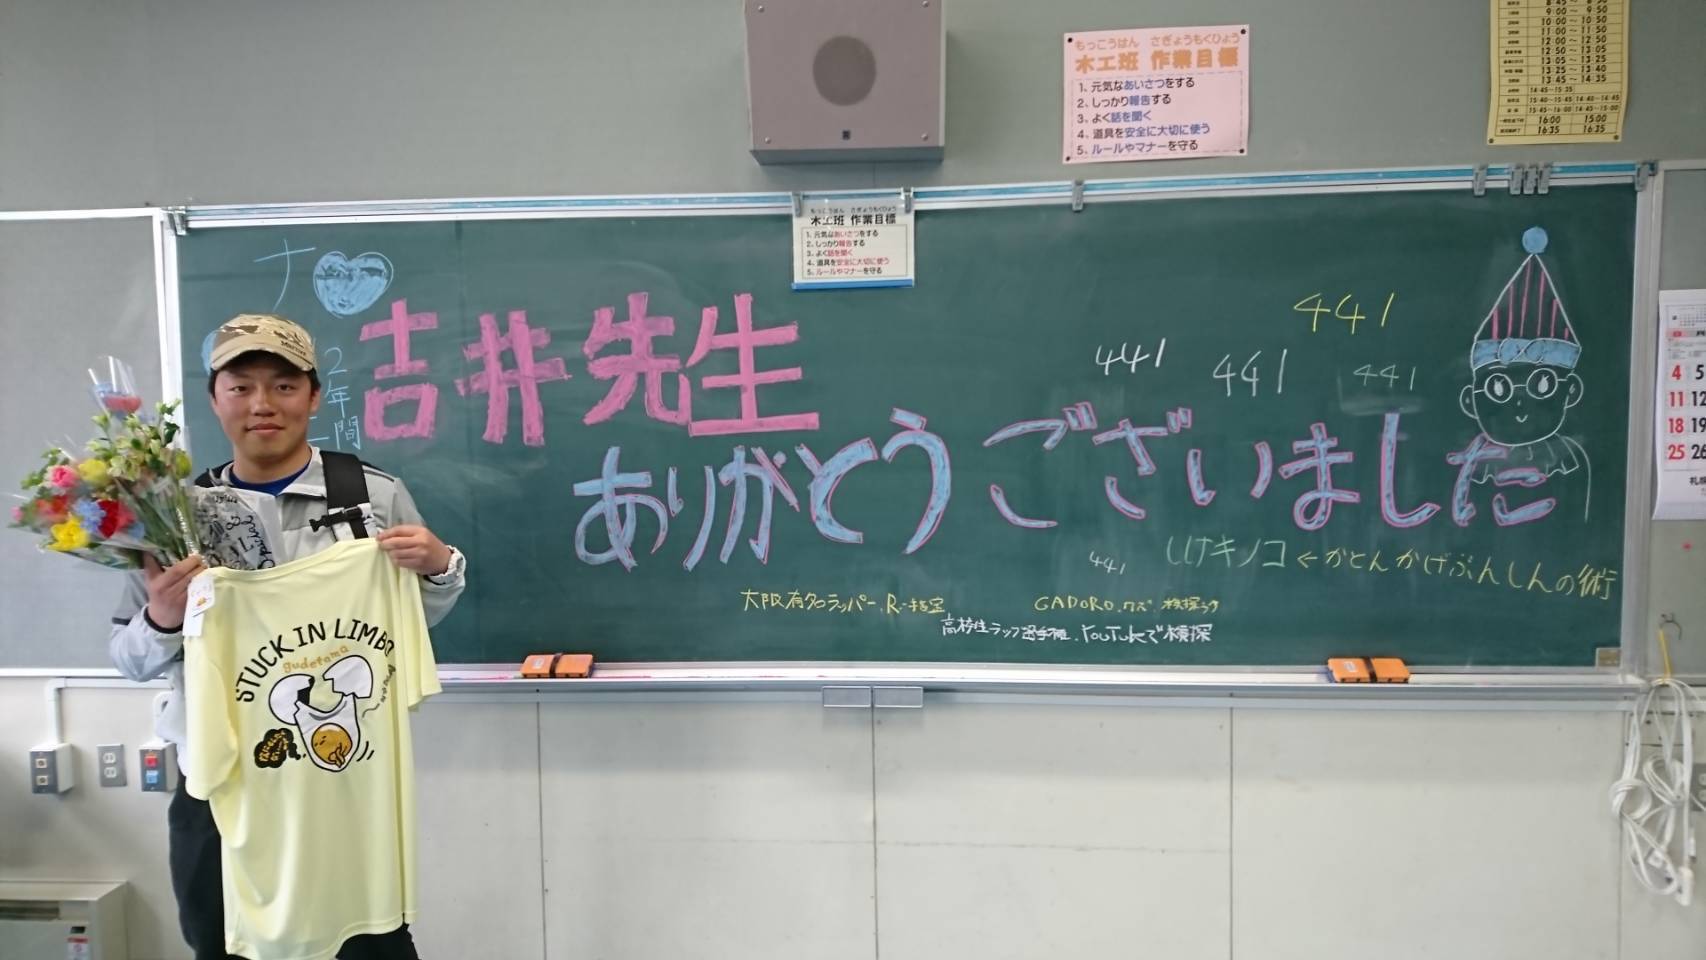 もっこうはん さぎょうもくひょう
木工班 作業目標
1、元気なあいさつをする
2、しっかり報告する
3、よく話を聞く
4、道具を安全に大切に使う
5、ルールやマナーを守る
9:00 ～ 9:50
10:00 ～ 10:50
11:00 ～ 11:50
12:00 ～ 12:50
12:50 ～ 13:05
13:05 ～ 13:25
13:25 ～ 13:40
13:45 ～ 14:35
14:45～15:35
15:40～15:45 14:40～14:45
15:45～16:00 14:45～15:00
16:00 15:00
16:35 16:35
もっこうはん さぎょうもくひょう
木工班 作業目標
1、元気なあいさつをする
2、しっかり報告する
3、よく話を聞く
4、道具を安全に大切に使う
5、ルールやマナーを守る
2年間
吉井先生
441
441
441
441
ありがとうございました
441
しけキノコ ←かとんかげぶんしんの術
大阪有名ラッパー、R-指定
GADORO、
高校生ラップ選手権、YouTubeで検索
4 5
11 12
18 19
25 26
STUCK IN LIMBO
gudetama